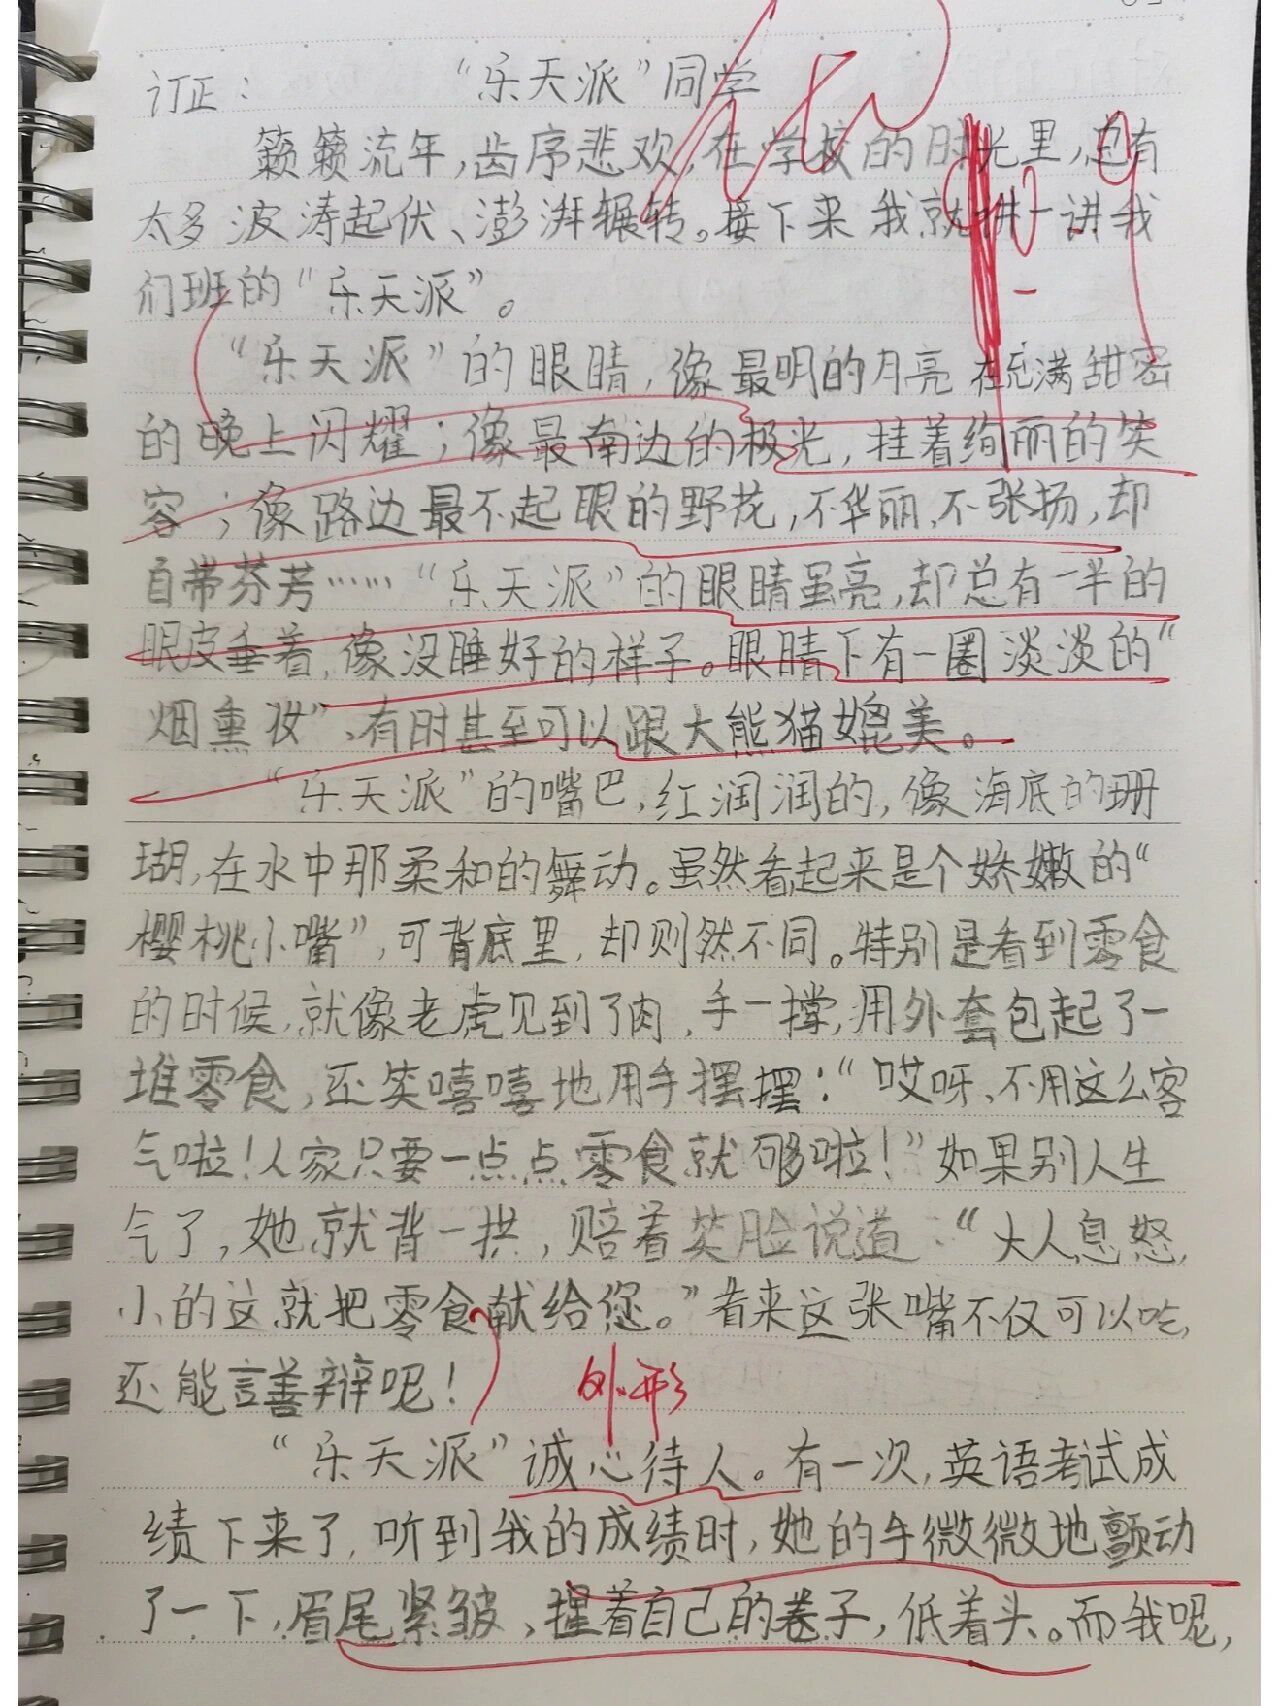 订正： “乐天派”同学
簌簌流年，齿序悲欢，在学校的时光里，总有
太多波涛起伏、澎湃辗转。接下来我就讲一讲我
们班的“乐天派”。
“乐天派”的眼睛，像最明的月亮在充满甜密
的晚上闪耀；像最南边的极光，挂着绚丽的笑
容；像路边最不起眼的野花，不华丽、不张扬，却
自带芬芳……“乐天派”的眼睛虽亮，却总有一半的
眼皮垂着，像没睡好的样子。眼睛下有一圈淡淡的“
烟熏妆”，有时甚至可以跟大熊猫媲美。
“乐天派”的嘴巴，红润润的，像海底的珊
瑚，在水中那柔和的舞动。虽然看起来是个娇嫩的“
樱桃小嘴”，可背底里，却则然不同。特别是看到零食
的时候，就像老虎见到了肉，手一撑，用外套包起了一
堆零食，还笑嘻嘻地用手摆摆：“哎呀、不用这么客
气啦！人家只要一点点零食就够啦！”如果别人生
气了，她就背一拱，赔着笑脸说道：“大人息怒，
小的这就把零食献给您。”看来这张嘴不仅可以吃，
还能言善辩呢！
外形
“乐天派”诚心待人。有一次，英语考试成
绩下来了，听到我的成绩时，她的手微微地颤动
了一下，眉尾紧皱，捏着自己的卷子，低着头。而我呢，